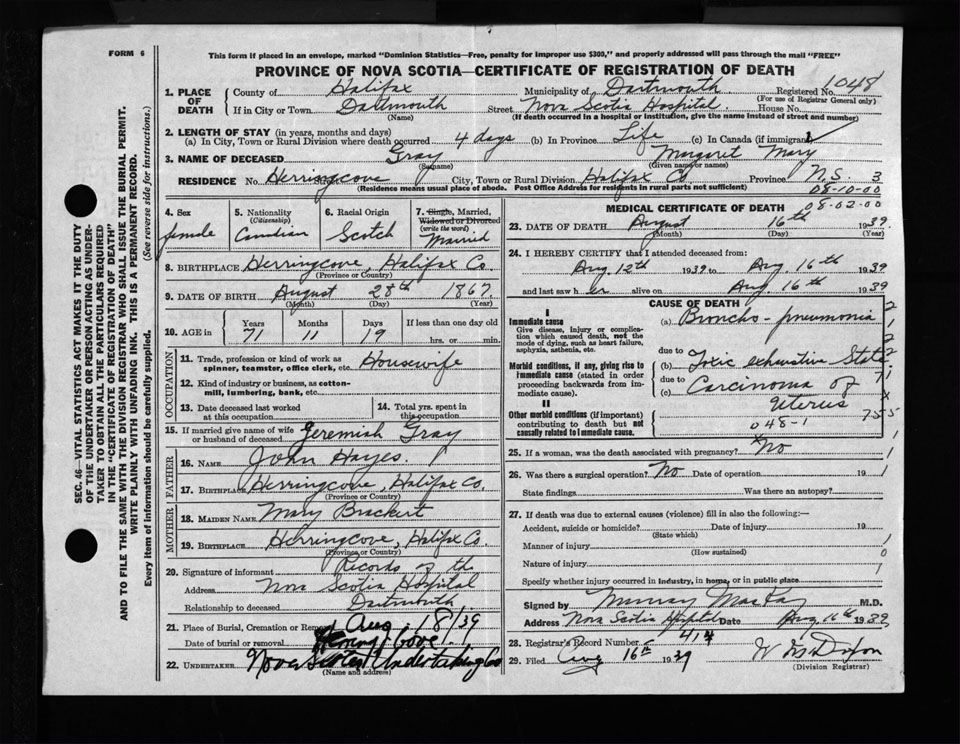 FORM 6
This form if placed in an envelope, marked "Dominion Statistics—Free, penalty for improper use $300," and properly addressed will pass through the mail "FREE"
PROVINCE OF NOVA SCOTIA—CERTIFICATE OF REGISTRATION OF DEATH
SEC. 46—VITAL STATISTICS ACT MAKES IT THE DUTY
OF THE UNDERTAKER OR PERSON ACTING AS UNDER-
TAKER TO OBTAIN ALL THE PARTICULARS REQUIRED
IN THE "CERTIFICATE OF REGISTRATION OF DEATH"
AND TO FILE THE SAME WITH THE DIVISION REGISTRAR WHO SHALL ISSUE THE BURIAL PERMIT.
WRITE PLAINLY WITH UNFADING INK. THIS IS A PERMANENT RECORD.
Every item of information should be carefully supplied. (See reverse side for instructions.)
1. PLACE OF DEATH County of Halifax Municipality of Dartmouth Registered No. 1048
(For use of Registrar General only)
If in City or Town Dartmouth Street Nova Scotia Hospital House No.
(Name) (If death occurred in a hospital or institution, give the name instead of street and number)
2. LENGTH OF STAY (in years, months and days)
(a) In City, Town or Rural Division where death occurred 4 days (b) In Province Life (c) In Canada (if immigrant)
3. NAME OF DECEASED Gray Margaret Mary
(Surname) (Given name or names)
RESIDENCE No. Herringcove City, Town or Rural Division Halifax Co. Province N.S. 3
(Residence means usual place of abode. Post Office Address for residents in rural parts not sufficient) 08-10-00
08-02-00
4. Sex female
5. Nationality (Citizenship) Canadian
6. Racial Origin Scotch
7. Single, Married, Widowed or Divorced (write the word) Married
8. BIRTHPLACE Herringcove, Halifax Co.
(Province or Country)
9. DATE OF BIRTH August 28th 1867
(Month) (Day) (Year)
10. AGE in Years Months Days If less than one day old
71 11 19 hrs. or min.
OCCUPATION
11. Trade, profession or kind of work as spinner, teamster, office clerk, etc. Housewife
12. Kind of industry or business, as cotton-mill, lumbering, bank, etc.
13. Date deceased last worked at this occupation
14. Total yrs. spent in this occupation
15. If married give name of wife or husband of deceased Jeremiah Gray
FATHER
16. NAME John Hayes.
17. BIRTHPLACE Herringcove, Halifax Co.
(Province or Country)
MOTHER
18. MAIDEN NAME Mary
19. BIRTHPLACE Herringcove, Halifax Co.
(Province or Country)
20. Signature of informant Records of the
Address Nova Scotia Hospital
Relationship to deceased Dartmouth
21. Place of Burial, Cremation or Removal Aug 18/39
Date of burial or removal Herring Cove.
22. UNDERTAKER Nova Scotia Undertaking Co
(Name and address)
MEDICAL CERTIFICATE OF DEATH
23. DATE OF DEATH August 16th 1939.
(Month) (Day) (Year)
24. I HEREBY CERTIFY that I attended deceased from:
Aug 12th 1939 to Aug. 16th 1939
and last saw her alive on Aug. 16th 1939
CAUSE OF DEATH
I
Immediate cause (a) Broncho-pneumonia
Give disease, injury or complication which caused death, not the mode of dying, such as heart failure, asphyxia, asthenia, etc.
due to
Morbid conditions, if any, giving rise to immediate cause (stated in order proceeding backwards from immediate cause). (b) Toxic exhaustive State
due to
(c) Carcinoma of
Uterus
II
Other morbid conditions (if important) contributing to death but not causally related to immediate cause.
048-1
25. If a woman, was the death associated with pregnancy? No
26. Was there a surgical operation? No Date of operation 19
State findings Was there an autopsy?
27. If death was due to external causes (violence) fill in also the following:—
Accident, suicide or homicide? Date of injury 19
(State which)
Manner of injury
(How sustained)
Nature of injury
Specify whether injury occurred in industry, in home, or in public place
Signed by Murray MacKay M.D.
Address Nova Scotia Hospital Date Aug. 16th 1939.
28. Registrar's Record Number 414
29. Filed Aug 16th 1939
(Division Registrar)